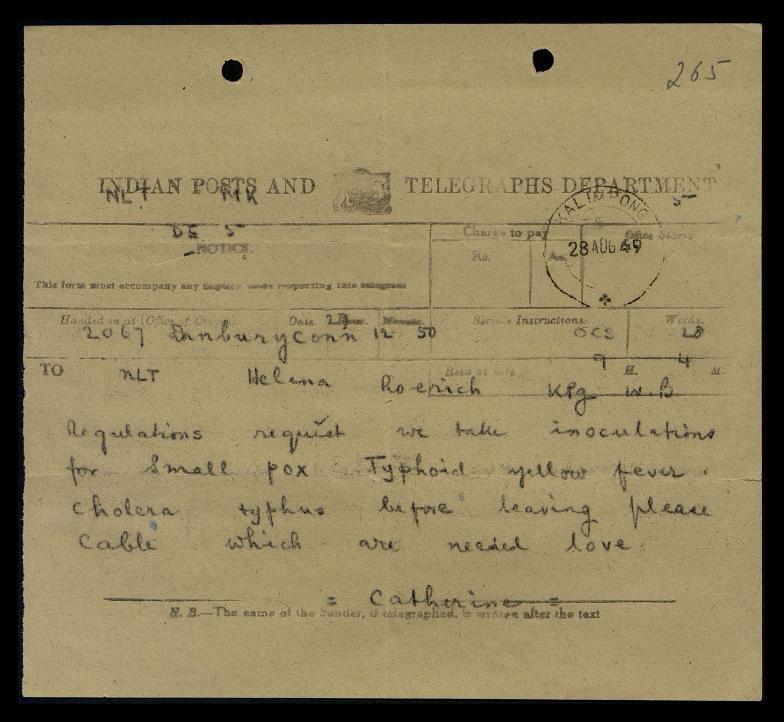 265
INDIAN POSTS AND TELEGRAPHS DEPARTMENT
NLT MK 5
DE 5
NOTICE.
Charge to pay
Office Stamp
Rs. As.
KALIMPONG
28 AUG 49
This form must accompany any inquiry made respecting this telegram
Handed in at (Office of Date Service Instructions. Words.
2067 Danbury conn 12 50 28
9 H. 4 M.
TO NLT Helena Roerich KPg W.B
Regulations requist we take inoculations
for Small pox Typhoid yellow fever
cholera typhus before leaving please
Cable which are needed love
= Catherine =
N. B.—The name of the Sender, if telegraphed, is written after the text